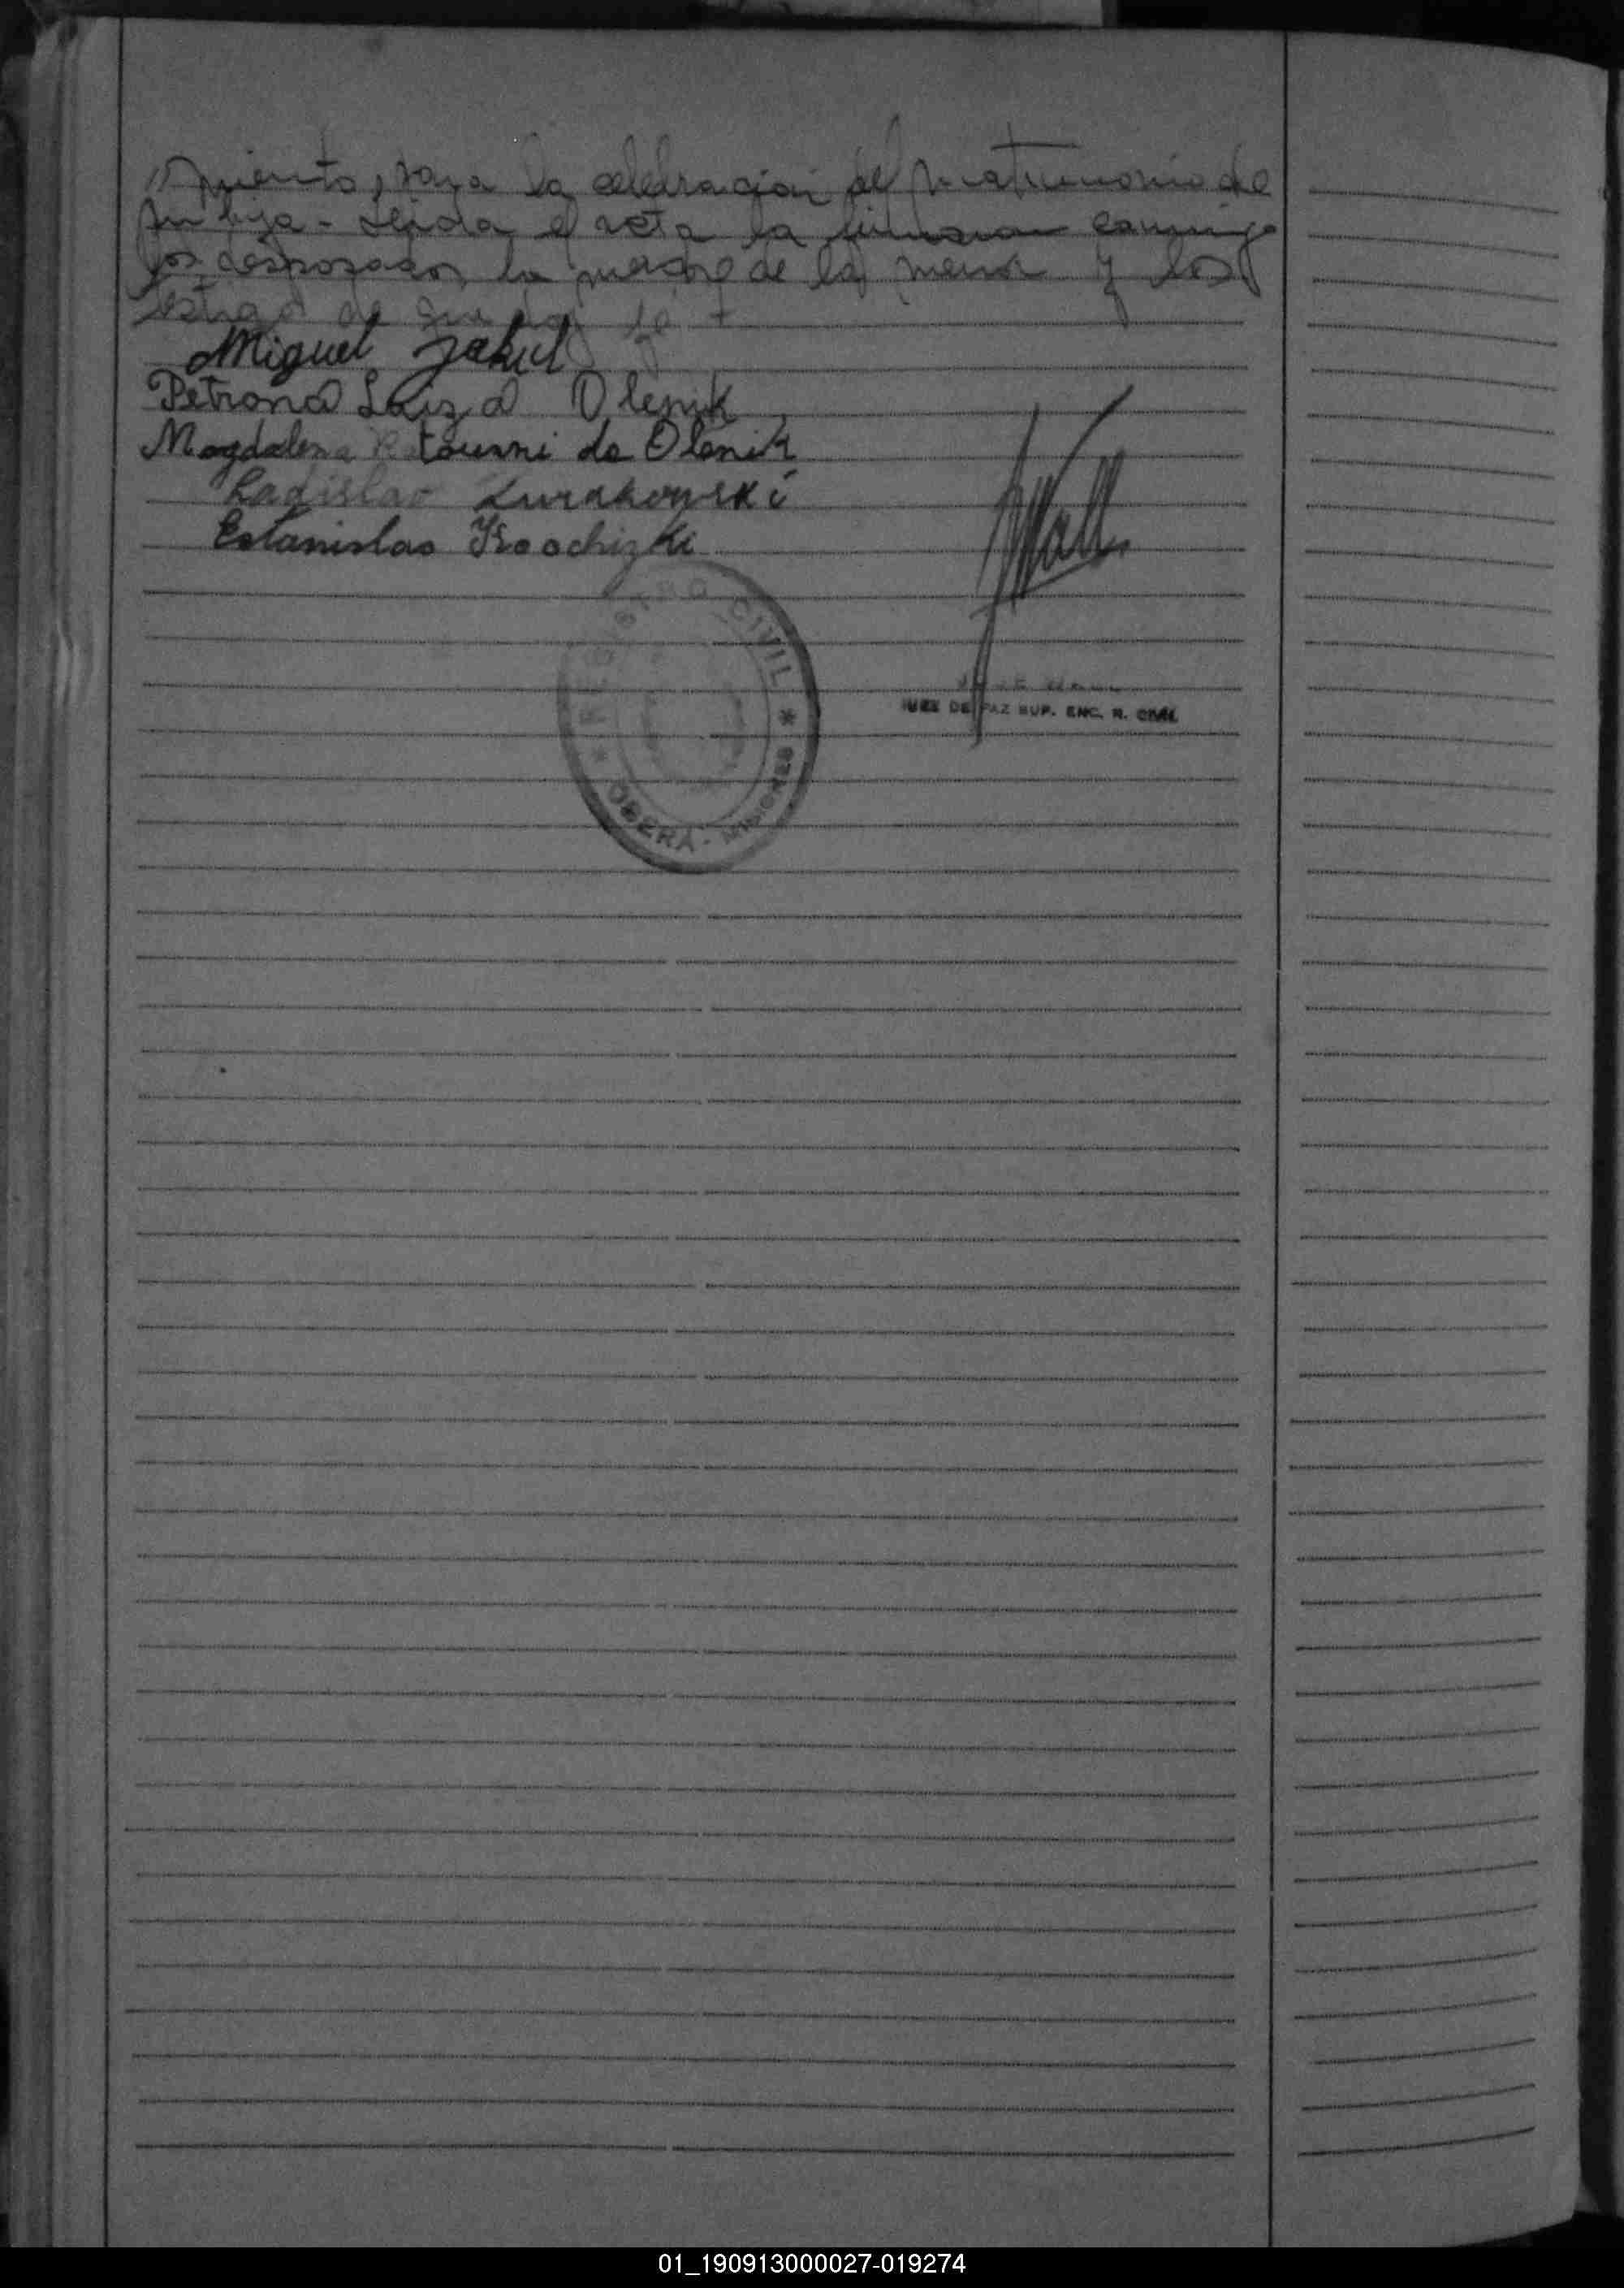 "miento, para la celebración del matrimonio de
su hija - Leida el acta la firmaron conmigo
los desposados, la madre de la menor y los
testigos de que doy fé +
Miguel Jakul
Petrona Luiza Olenik
Magdalena de Olenik
Ladislao Zurakowski
Estanislao
REGISTRO CIVIL * OBERÁ - MISIONES *
JUEZ DE PAZ SUP. ENC. R. CIVIL
01_190913000027-019274